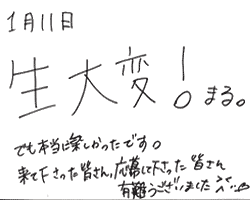 1月11日
生大変!。まる。
でも本当に楽しかったです。
来て下さった皆さん、応募して下さった皆さん
有難うございました